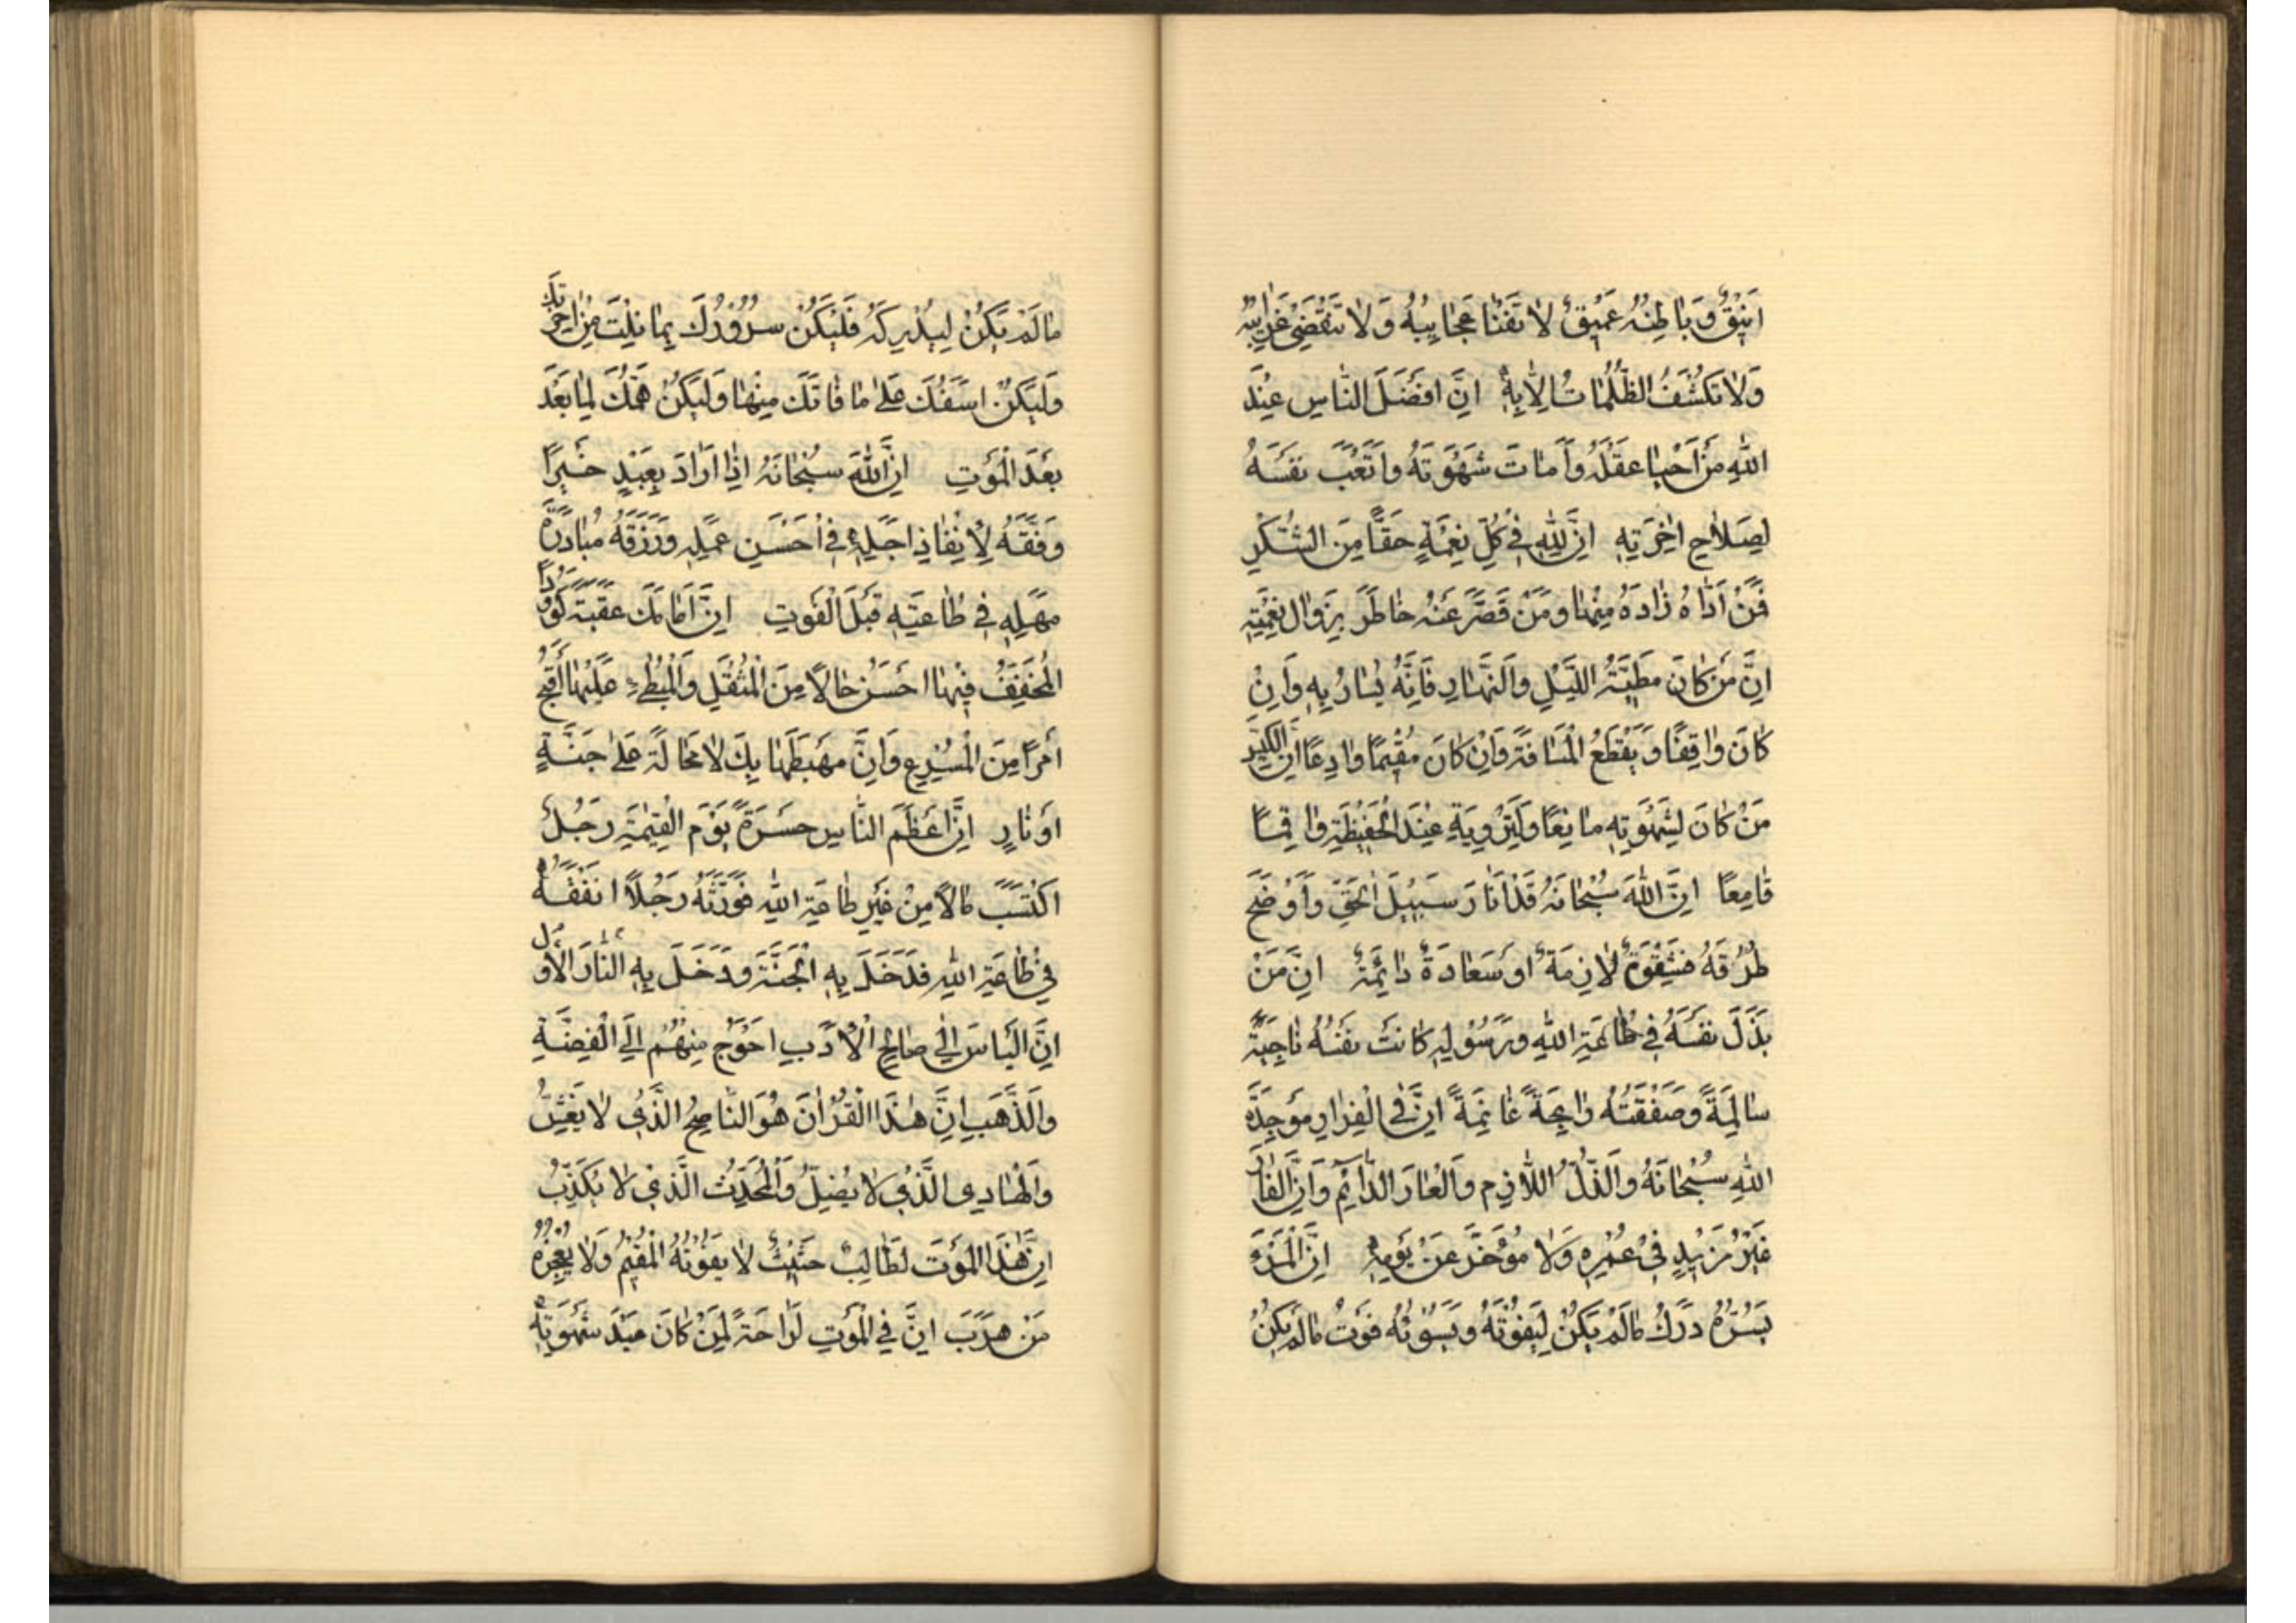 اَنِيْقٌ وَبَاطِنُهُ عَمِيْقٌ لَا تَفْنَا عَجَايِبُهُ وَلَا تَنْقَضِي غَرَايِبُهُ
وَلَا تَكْشَفُ الظُّلُمَاتُ اِلَّا بِهِ اِنَّ اَفْضَلَ النَّاسِ عِنْدَ
اللّٰهِ مَنْ اَحْيَا عَقْلَهُ وَاَمَاتَ شَهْوَتَهُ وَاَتْعَبَ نَفْسَهُ
لِصَلَاحِ اٰخِرَتِهِ اِنَّ لِلّٰهِ فِي كُلِّ نِعْمَةٍ حَقًّا مِنَ الشُّكْرِ
فَمَنْ اَدَّاهُ زَادَهُ مِنْهَا وَمَنْ قَصَّرَ عَنْهُ خَاطَرَ بِزَوَالِ نِعْمَتِهِ
اِنَّ مَنْ كَانَ مَطِيَّتُهُ اللَّيْلَ وَالنَّهَارِ فَاِنَّهُ يُسَارُ بِهِ وَاِنْ
كَانَ وَاقِفًا وَيَقْطَعُ الْمَسَافَةَ وَاِنْ كَانَ مُقِيْمًا وَادِعًا اِنَّ الْكَيِّسَ
مَنْ كَانَ لِشَهْوَتِهِ مَانِعًا وَلِنَزْوِيَةِ عِنْدَ الْحَفِيْظَةِ وَاقِمًا
قَامِعًا اِنَّ اللّٰهَ سُبْحَانَهُ قَدْ اَنَارَ سَبِيْلَ الْحَقِّ وَاَوْضَحَ
طُرُقَهُ فَشِقْوَةٌ لَازِمَةٌ اَوْ سَعَادَةٌ دَائِمَةٌ اِنَّ مَنْ
بَذَلَ نَفْسَهُ فِي طَاعَةِ اللّٰهِ وَرَسُوْلِهِ كَانَتْ نَفْسُهُ نَاجِيَةً
سَالِمَةً وَصَفْقَتُهُ رَابِحَةً غَانِمَةً اِنَّ فِي الْفِرَارِ مَوْجِدَةَ
اللّٰهِ سُبْحَانَهُ وَالذُّلَّ اللَّازِمِ وَالْعَارَ الدَّائِمَ وَاِنَّ الْفَارَّ
غَيْرُ مَزِيْدٍ فِي عُمُرِهِ وَلَا مُؤَخَّرٌ عَنْ يَوْمِهِ اِنَّ الْمَرْءَ
يَسُرُّهُ دَرَكُ مَا لَمْ يَكُنْ لِيَفُوْتَهُ وَيَسُوْئُهُ فَوْتُ مَا لَمْ يَكُنْ
مَا لَمْ يَكُنْ لِيُدْرِكَهُ فَلْيَكُنْ سُرُوْرُكَ بِمَا نِلْتَ مِنْ اٰخِرَتِكَ
وَلْيَكُنْ اَسَفُكَ عَلَى مَا فَاتَكَ مِنْهَا وَلْيَكُنْ هَمُّكَ لِمَا بَعْدَ
بَعْدَ الْمَوْتِ اِنَّ اللّٰهَ سُبْحَانَهُ اِذَا اَرَادَ بِعَبْدٍ خَيْرًا
وَفَّقَهُ لِاِنْفَاذِ اَجَلِهِ فِي اَحْسَنِ عَمَلِهِ وَرَزَقَهُ مُبَادَرَةَ
مَهَلِهِ فِي طَاعَتِهِ قَبْلَ الْفَوْتِ اِنَّ اَمَامَكَ عَقَبَةً كَؤُوْدًا
الْمُخَفِّفُ فِيْهَا اَحْسَنُ حَالًا مِنَ الْمُثْقَلِ وَالْمُبْطِيءُ عَلَيْهَا اَقْبَحُ
اَمْرًا مِنَ الْمُسْرِعِ وَاِنَّ مَهْبَطَهَا بِكَ لَا مَحَالَةَ عَلَى جَنَّةٍ
اَوْ نَارٍ اِنَّ اَعْظَمَ النَّاسِ حَسْرَةً يَوْمَ الْقِيٰمَةِ رَجُلٌ
اكْتَسَبَ مَالًا مِنْ غَيْرِ طَاعَةِ اللّٰهِ فَوَرَّثَهُ رَجُلًا اَنْفَقَهُ
فِي طَاعَةِ اللّٰهِ فَدَخَلَ بِهِ الْجَنَّةَ وَدَخَلَ بِهِ النَّارَ الْاَوَّلُ
اِنَّ النَّاسَ اِلَى صَالِحِ الْاَدَبِ اَحْوَجُ مِنْهُمْ اِلَى الْفِضَّةِ
وَالذَّهَبِ اِنَّ هٰذَا الْقُرْاٰنَ هُوَ النَّاصِحُ الَّذِي لَا يَغُشُّ
وَالْهَادِي الَّذِي لَا يُضِلُّ وَالْمُحَدِّثُ الَّذِي لَا يَكْذِبُ
اِنَّ هٰذَا الْمَوْتَ لَطَالِبٌ حَثِيْثٌ لَا يَفُوْتُهُ الْمُقِيْمُ وَلَا يُعْجِزُهُ
مَنْ هَرَبَ اِنَّ فِي الْمَوْتِ لَرَاحَةً لِمَنْ كَانَ عَبْدَ شَهْوَتِهِ